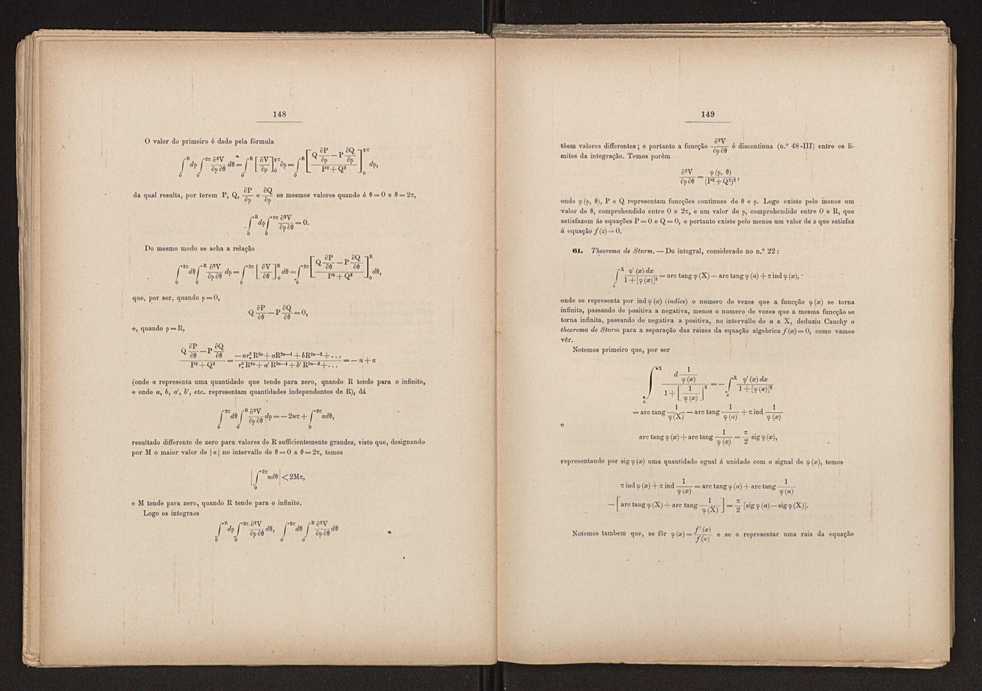 148
O valor do primeiro é dado pela fórmula
∫₀^R dρ ∫₀^{2π} ∂²V/∂ρ∂θ dθ = ∫₀^R [∂V/∂ρ]₀^{2π} dρ = ∫₀^R [(Q ∂P/∂ρ − P ∂Q/∂ρ)/(P² + Q²)]₀^{2π} dρ,
da qual resulta, por terem P, Q, ∂P/∂ρ e ∂Q/∂ρ os mesmos valores quando é θ = 0 e θ = 2π,
∫₀^R dρ ∫₀^{2π} ∂²V/∂ρ∂θ = 0.
Do mesmo modo se acha a relação
∫₀^{2π} dθ ∫₀^R ∂²V/∂ρ∂θ dρ = ∫₀^{2π} [∂V/∂θ]₀^R dθ = ∫₀^{2π} [(Q ∂P/∂θ − P ∂Q/∂θ)/(P² + Q²)]₀^R dθ,
que, por ser, quando ρ = 0,
Q ∂P/∂θ − P ∂Q/∂θ = 0,
e, quando ρ = R,
(Q ∂P/∂θ − P ∂Q/∂θ)/(P² + Q²) = (−nr²ₙR²ⁿ + aR²ⁿ⁻¹ + bR²ⁿ⁻² + ...)/(r²ₙR²ⁿ + a′R²ⁿ⁻¹ + b′R²ⁿ⁻² + ...) = −n + α
(onde α representa uma quantidade que tende para zero, quando R tende para o infinito,
e onde a, b, a′, b′, etc. representam quantidades independentes de R), dá
∫₀^{2π} dθ ∫₀^R ∂²V/∂ρ∂θ dρ = −2nπ + ∫₀^{2π} αdθ,
resultado differente de zero para valores de R sufficientemente grandes, visto que, designando
por M o maior valor de |α| no intervallo de θ = 0 a θ = 2π, temos
|∫₀^{2π} αdθ| < 2Mπ,
e M tende para zero, quando R tende para o infinito.
Logo os integraes
∫₀^R dρ ∫₀^{2π} ∂²V/∂ρ∂θ dθ, ∫₀^{2π} dθ ∫₀^R ∂²V/∂ρ∂θ dθ
149
têem valores differentes; e portanto a funcção ∂²V/∂ρ∂θ é discontinua (n.º 48-III) entre os li-
mites da integração. Temos porém
∂²V/∂ρ∂θ = φ(ρ, θ)/(P² + Q²)²,
onde φ(ρ, θ), P e Q representam funcções continuas de θ e ρ. Logo existe pelo menos um
valor de θ, comprehendido entre 0 e 2π, e um valor de ρ, comprehendido entre 0 e R, que
satisfazem ás equações P = 0 e Q = 0, e portanto existe pelo menos um valor de z que satisfaz
á equação f(z) = 0.
61. Theorema de Sturm. — Do integral, considerado no n.º 22:
∫ₐ^X φ′(x) dx/(1 + [φ(x)]²) = arc tang φ(X) − arc tang φ(a) + π ind φ(x),
onde se representa por ind φ(x) (indice) o numero de vezes que a funcção φ(x) se torna
infinita, passando de positiva a negativa, menos o numero de vezes que a mesma funcção se
torna infinita, passando de negativa a positiva, no intervallo de a a X, deduziu Cauchy o
theorema de Sturm para a separação das raizes da equação algebrica f(x) = 0, como vamos
vêr.
Notemos primeiro que, por ser
∫ₐ^X d(1/φ(x))/(1 + [1/φ(x)]²) = − ∫ₐ^X φ′(x) dx/(1 + [φ(x)]²)
= arc tang 1/φ(X) − arc tang 1/φ(a) + π ind 1/φ(x)
e
arc tang φ(x) + arc tang 1/φ(x) = π/2 sig φ(x),
representando por sig φ(x) uma quantidade egual á unidade com o signal de φ(x), temos
π ind φ(x) + π ind 1/φ(x) = arc tang φ(a) + arc tang 1/φ(a)
− [arc tang φ(X) + arc tang 1/φ(X)] = π/2 [sig φ(a) − sig φ(X)].
Notemos tambem que, se fôr φ(x) = f′(x)/f(x) e se α representar uma raiz da equação